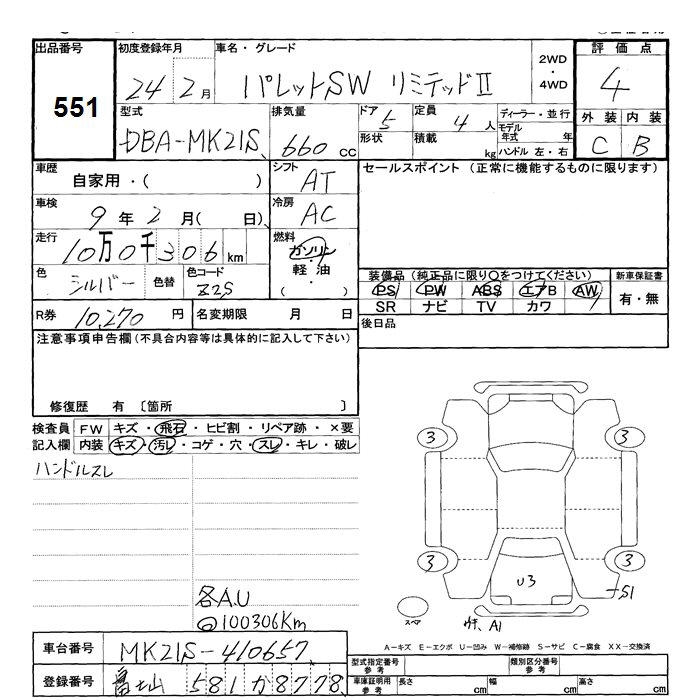 出品番号 初度登録年月 車名・グレード 2WD・4WD 評価点
551 24 2月 パレットSW リミテッドⅡ 4
型式 排気量 ドア 5 定員 4人 ディーラー・並行 外装 内装
DBA-MK21S 660 cc 形状 積載 kg モデル年式 年 ハンドル 左・右 C B
車歴 自家用・( ) シフト AT セールスポイント (正常に機能するものに限ります)
車検 9年2月(日) 冷房 AC
走行 10万0千306km 燃料 ガソリン
軽油
・
( )
色 シルバー 色替 色コード Z2S
装備品 (純正品に限り○をつけてください) 新車保証書
PS PW ABS エアB AW 有・無
SR ナビ TV カワ
R券 10,270円 名変期限 月 日 後日品
注意事項申告欄(不具合内容等は具体的に記入して下さい)
修復歴 有 〔箇所 〕
検査員 FW キズ・飛石・ヒビ割・リペア跡・×要
記入欄 内装 キズ・汚レ・コゲ・穴・スレ・キレ・破レ
ハンドルスレ
3 3
3 3
U3
S1
スペア
A1
各A.U
100306Km
A-キズ E-エクボ U-凹み W-補修跡 S-サビ C-腐食 XX-交換済
車台番号 MK21S-410657
型式指定番号 参考 類別区分番号 参考
登録番号 富士山 581 か 8778
車庫証明用 参考 長さ cm 幅 cm 高さ cm